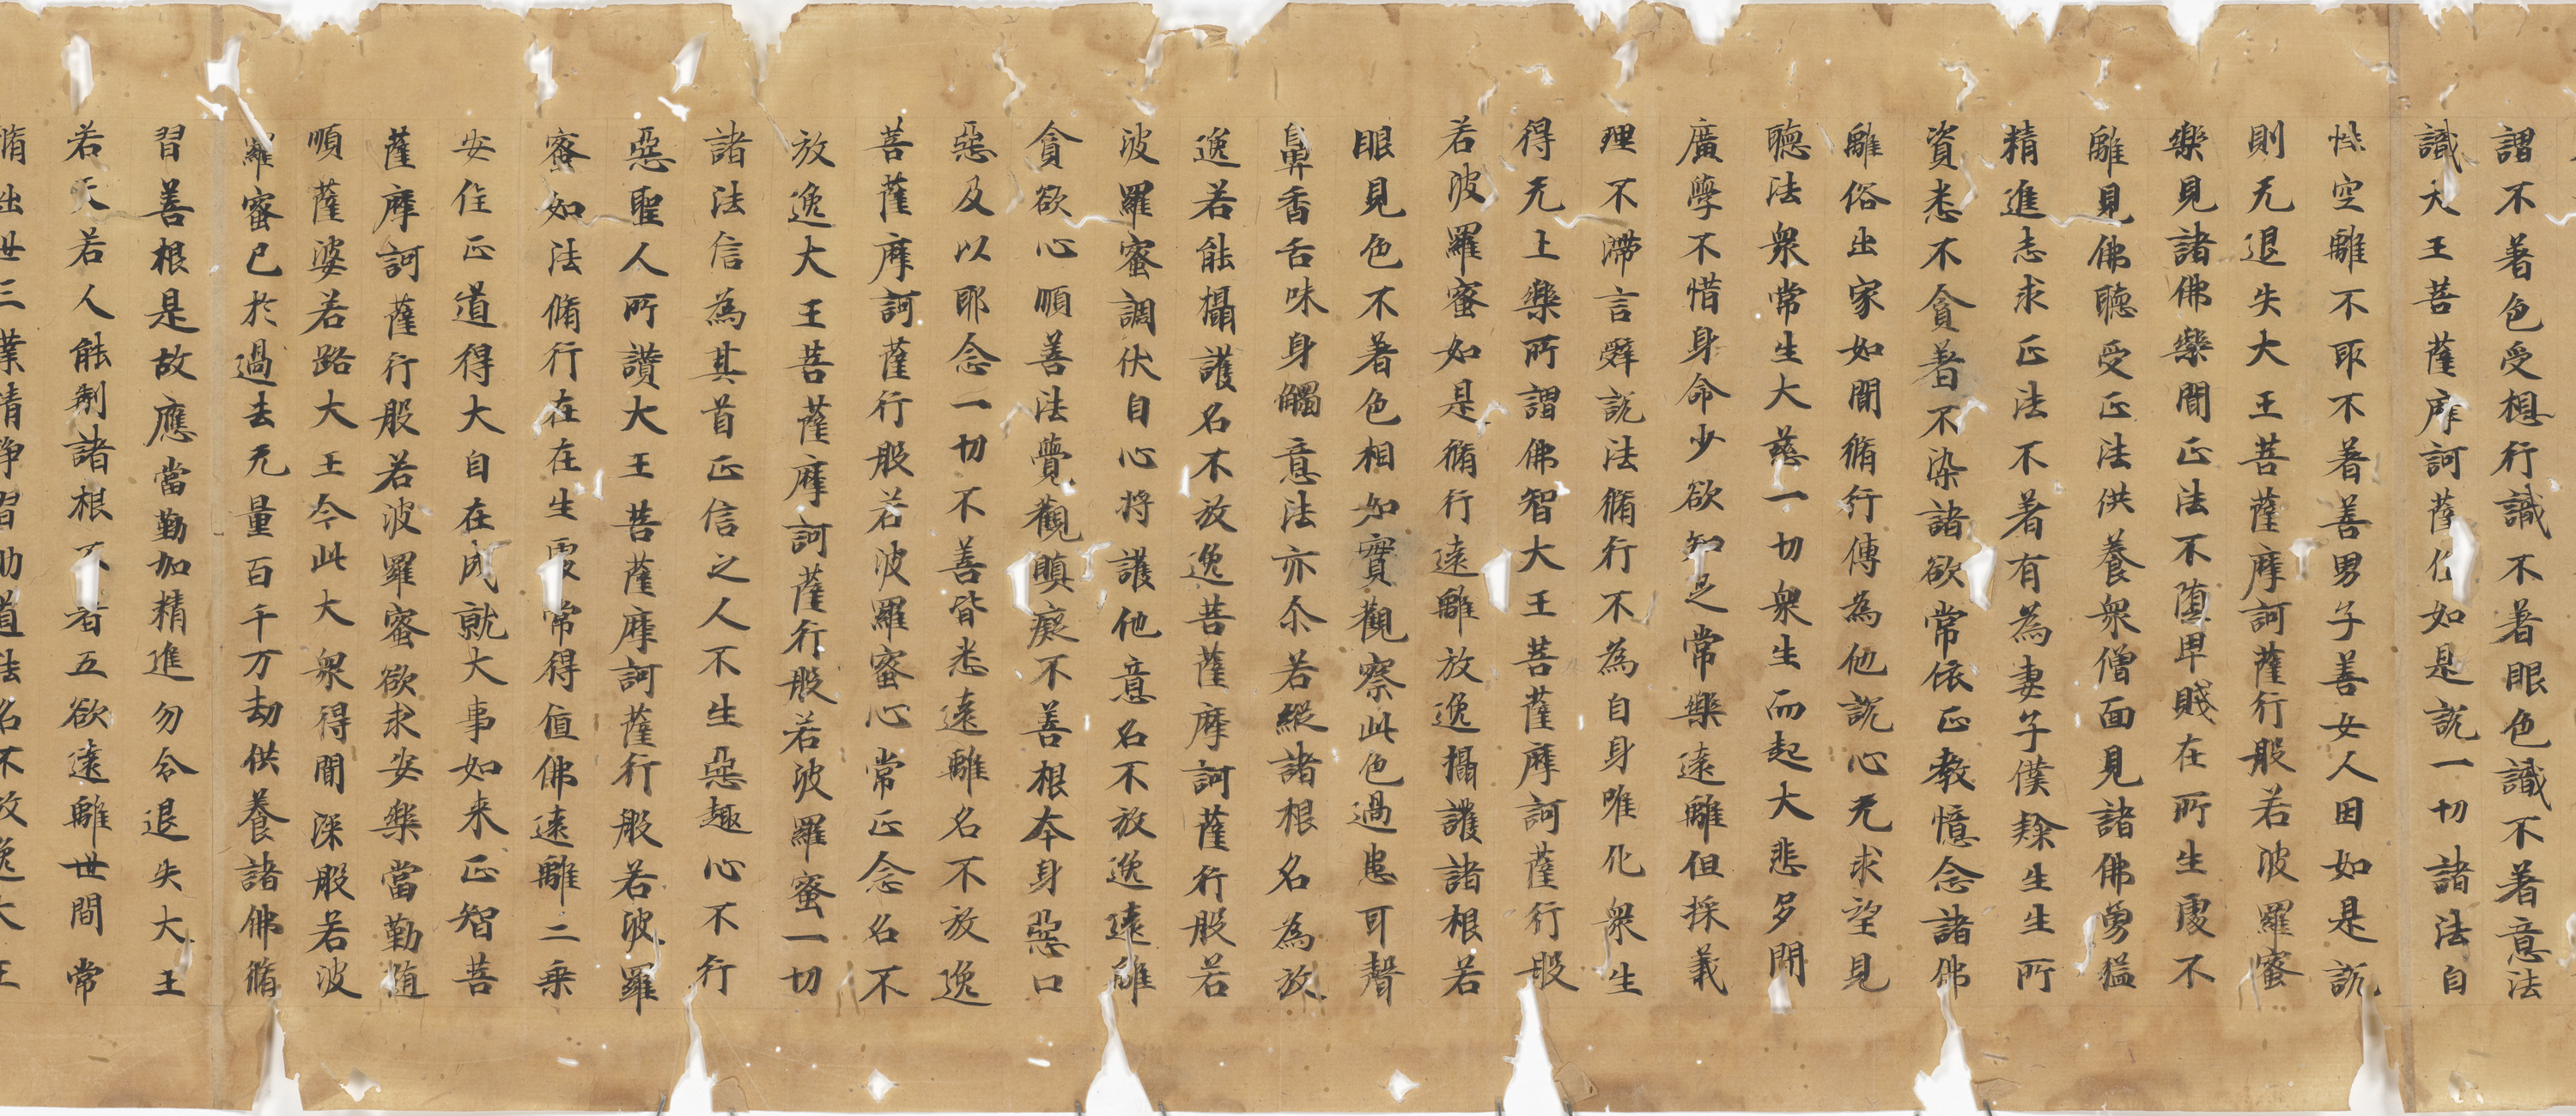 謂不著色受想行識不著眼色識不著意法
識大王菩薩摩訶薩作如是説一切諸法自
性空離不取不著善男子善女人因如是説
則无退失大王菩薩摩訶薩行般若波羅蜜
樂見諸佛樂聞正法不墮卑賤在所生處不
離見佛聽受正法供養衆僧面見諸佛勇猛
精進志求正法不著有為妻子僕隸生生所
資悉不貪著不染諸欲常依正教憶念諸佛
離俗出家如聞脩行傳為他説心无求望見
聽法衆常生大慈一切衆生而起大悲多聞
廣學不惜身命少欲知足常樂遠離但採義
理不滯言辭説法脩行不為自身唯化衆生
得无上樂所謂佛智大王菩薩摩訶薩行般
若波羅蜜如是脩行遠離放逸攝護諸根若
眼見色不著色相如實觀察此色過患耳聲
鼻香舌味身觸意法亦尒若縱諸根名為放
逸若能攝護名不放逸菩薩摩訶薩行般若
波羅蜜調伏自心將護他意名不放逸遠離
貪欲心順善法覺觀瞋癡不善根本身惡口
惡及以耶念一切不善皆悉遠離名不放逸
菩薩摩訶薩行般若波羅蜜心常正念名不
放逸大王菩薩摩訶薩行般若波羅蜜一切
諸法信為其首正信之人不生惡趣心不行
惡聖人所讚大王菩薩摩訶薩行般若波羅
蜜如法脩行在在生處常得值佛遠離二乘
安住正道得大自在成就大事如来正智菩
薩摩訶薩行般若波羅蜜欲求安樂當勤随
順薩婆若路大王今此大衆得聞深般若波
羅蜜已於過去无量百千万劫供養諸佛脩
習善根是故應當勤加精進勿令退失大王
若天若人能制諸根不著五欲遠離世間常
脩出世三業清淨習助道法名不放逸大王